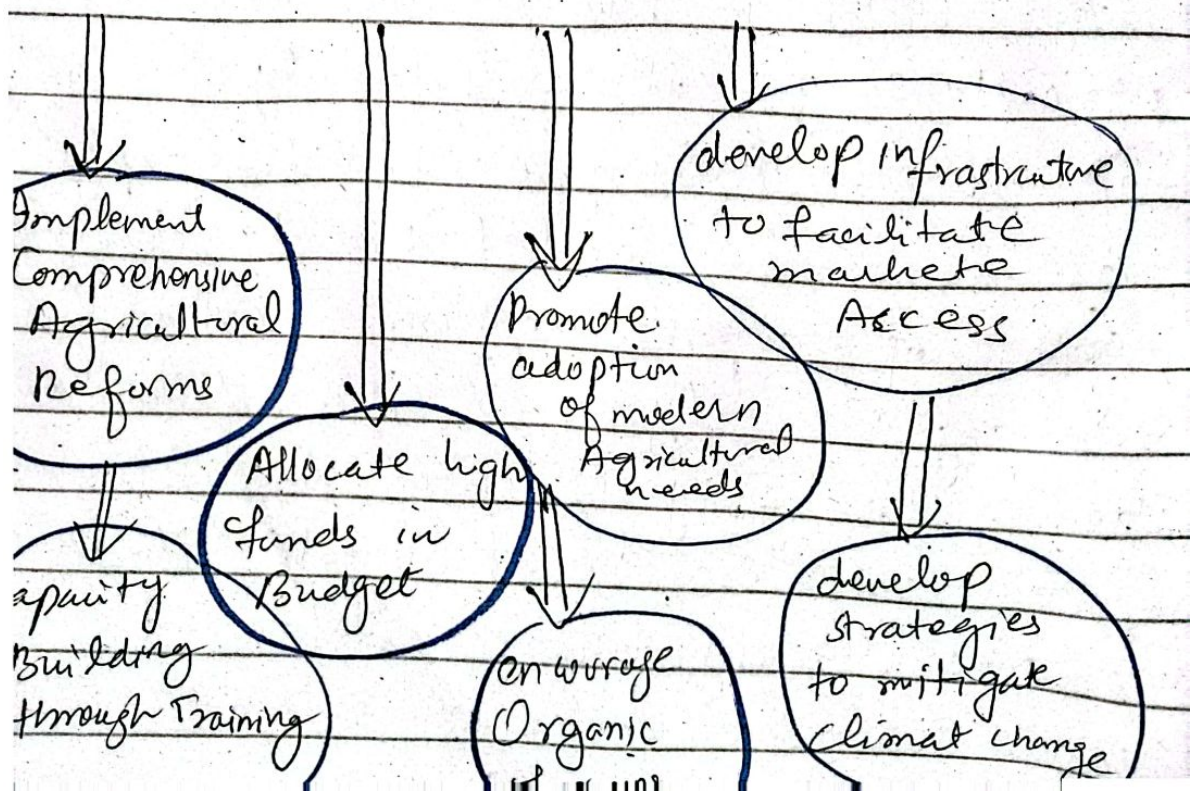 Implement
Comprehensive
Agricultural
Reforms
Allocate high
funds in
Budget
Promote
adoption
of modern
Agricultural
needs
develop infrastructure
to facilitate
markete
Access
apacity
Building
through Training
encourage
Organic
develop
strategies
to mitigate
climat change